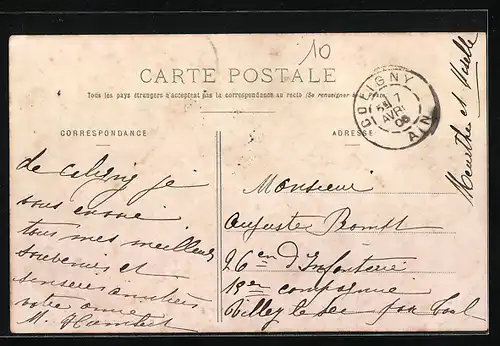 10
CARTE POSTALE
Tous les pays étrangers n'acceptent pas la correspondance au recto (Se renseigner à la Poste)
COLIGNY
7
AVRIL
06
AIN
CORRESPONDANCE
ADRESSE
de coligny je
vous envoie
tous mes meilleurs
souvenirs et
sinsères
votre amie
M.
Monsieur
Auguste
26em d'Infanterie
compagnie
Villey le Sec par Toul
Meurthe et Moselle